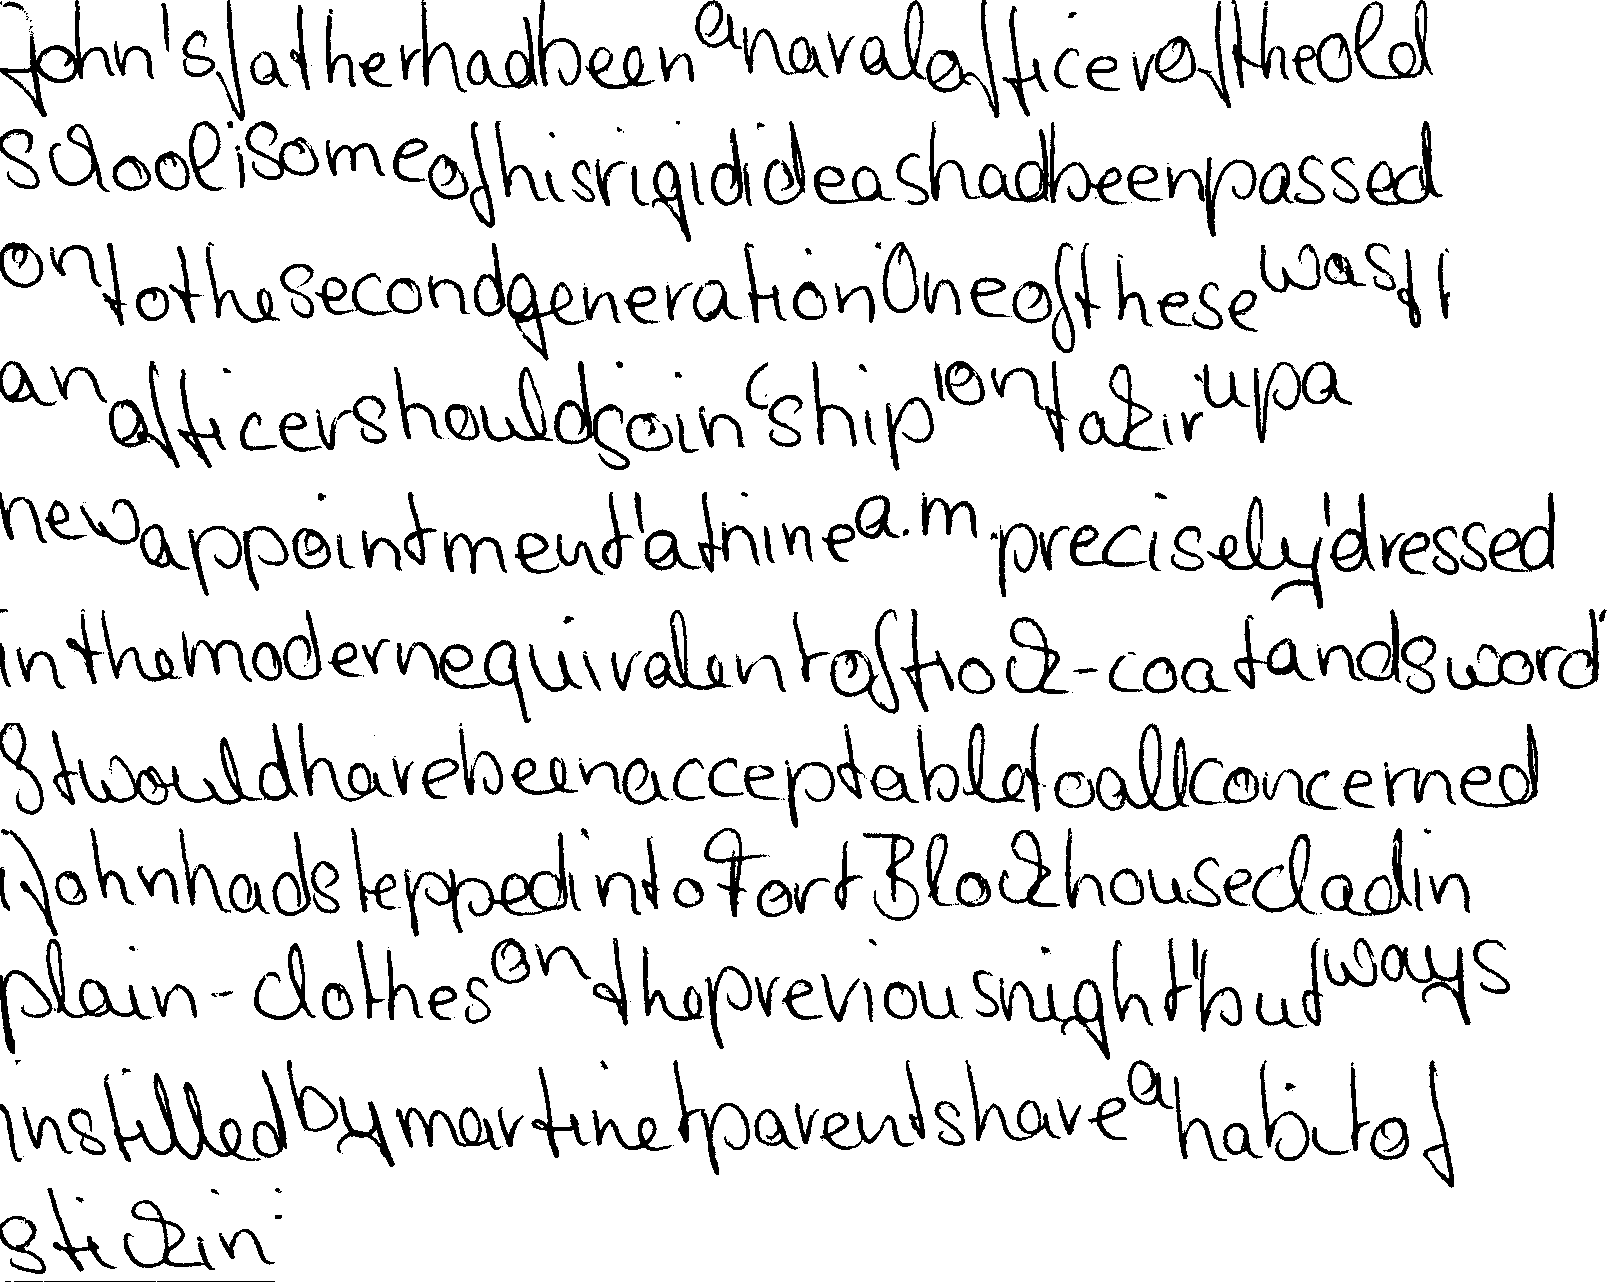 John's father had been a naval officer of the old
school; some of his rigid ideas had been passed
on to the second generation One of these was, if
an officer should join 'ship' on takir up a
new appointment 'at nine a.m. precisely' dressed
in the modern equivalent of frock-coat and sword"
It would have been acceptable to all concerned
i John had stepped into Fort Blockhouse clad in
plain-clothes on the previous night" but ways
instilled by martinet parents have a habit of
stickin.